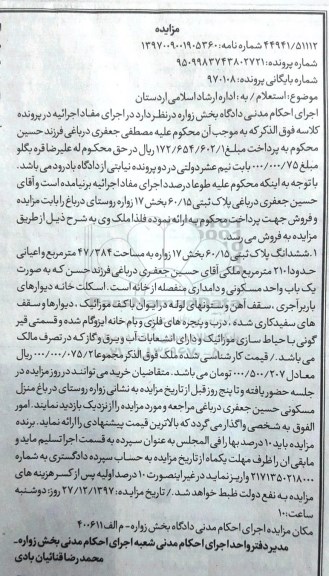 مزایده
۴۴۹۴۱/۵۱۱۱۲ شماره نامه: ۱۳۹۷۰۰۹۰۰۱۹۰۵۳۶۰
شماره پرونده: ۹۵۰۹۹۸۳۷۴۳۸۰۲۷۲۱
شماره بایگانی پرونده: ۹۷۰۱۰۸
موضوع: استعلام / به: اداره ارشاد اسلامی اردستان
اجرای احکام مدنی دادگاه بخش زواره در نظر دارد در اجرای مفاد اجرائیه در پرونده
کلاسه فوق الذکر که به موجب آن محکوم علیه مصطفی جعفری درباغی فرزند حسین
محکوم به پرداخت مبلغ ۱۷۲/۶۵۴/۶۰۲/۱ ریال در حق محکوم له علیرضا قره بگلو
مبلغ ۰۰۰/۰۰۰/۷۵ بابت نیم عشر دولتی در دو پرونده نیابتی از دادگاه بادرود می باشد.
با توجه به اینکه محکوم علیه طوعا درصدد اجرای مفاد اجرائیه برنیامده است و آقای
حسین جعفری درباغی پلاک ثبتی ۶۰/۱۵ بخش ۱۷ زواره روستای درباغ را بابت مزایده
و فروش جهت پرداخت محکوم به ارائه نموده فلذا ملک وی به شرح ذیل از طریق
مزایده به فروش می رسد
۱.ششدانگ پلاک ثبتی ۶۰/۱۵ بخش ۱۷ زواره به مساحت ۴۷/۳۸۴ مترمربع و اعیانی
حدودا ۲۱۰ متر مربع ملکی آقای حسین جعفری درباغی فرزند حسن که به صورت
یک باب واحد مسکونی و دامداری منفصله از خانه است. اسکلت خانه دیوارهای
باربر آجری، سقف آهن و ستونهای لوله در ایوان با کف موزائیک، دیوارها و سقف
های سفیدکاری شده، درب و پنجره های فلزی و بام خانه ایزوگام شده و قسمتی قیر
گونی با حیاط سازی موزائیک و دارای انشعابات آب و برق و گاز که در تصرف مالک
می باشد./ قیمت کارشناسی شده ملک فوق الذکر مجموعا ۰۰۰/۰۰۰/۰۷۵/۲ ریال
معادل ۰۰۰/۵۰۰/۲۰۷ تومان می باشد. متقاضیان خرید می توانند در روز مزایده در
جلسه حضور یافته و تا پنج روز قبل از تاریخ مزایده به نشانی زواره روستای درباغ منزل
مسکونی حسین جعفری درباغی مراجعه و مورد مزایده را از نزدیک بازدید نمایند. امور
الفوق به شخصی واگذار می گردد که بالاترین قیمت پیشنهادی را ارائه نماید. برنده
مزایده باید ۱۰ درصد بها را فی المجلس به عنوان سپرده به قسمت اجرا تسلیم نماید و
مابقی آن را ظرف مهلت یکماه از تاریخ مزایده به حساب سپرده دادگستری به شماره
۲۱۷۱۳۵۰۲۱۸۰۰۰ واریز نماید در غیر اینصورت ۱۰ درصد اولیه پس از کسر هزینه های
مزایده به نفع دولت ظبط خواهد شد./ تاریخ مزایده: ۲۷/۱۲/۱۳۹۷ روز: دوشنبه
ساعت: ۱۰
مکان مزایده اجرای احکام مدنی دادگاه بخش زواره - م الف ۴۰۰۶۱۱
مدیر دفتر واحد اجرای احکام مدنی شعبه اجرای احکام مدنی بخش زواره -
محمدرضا قنائیان بادی